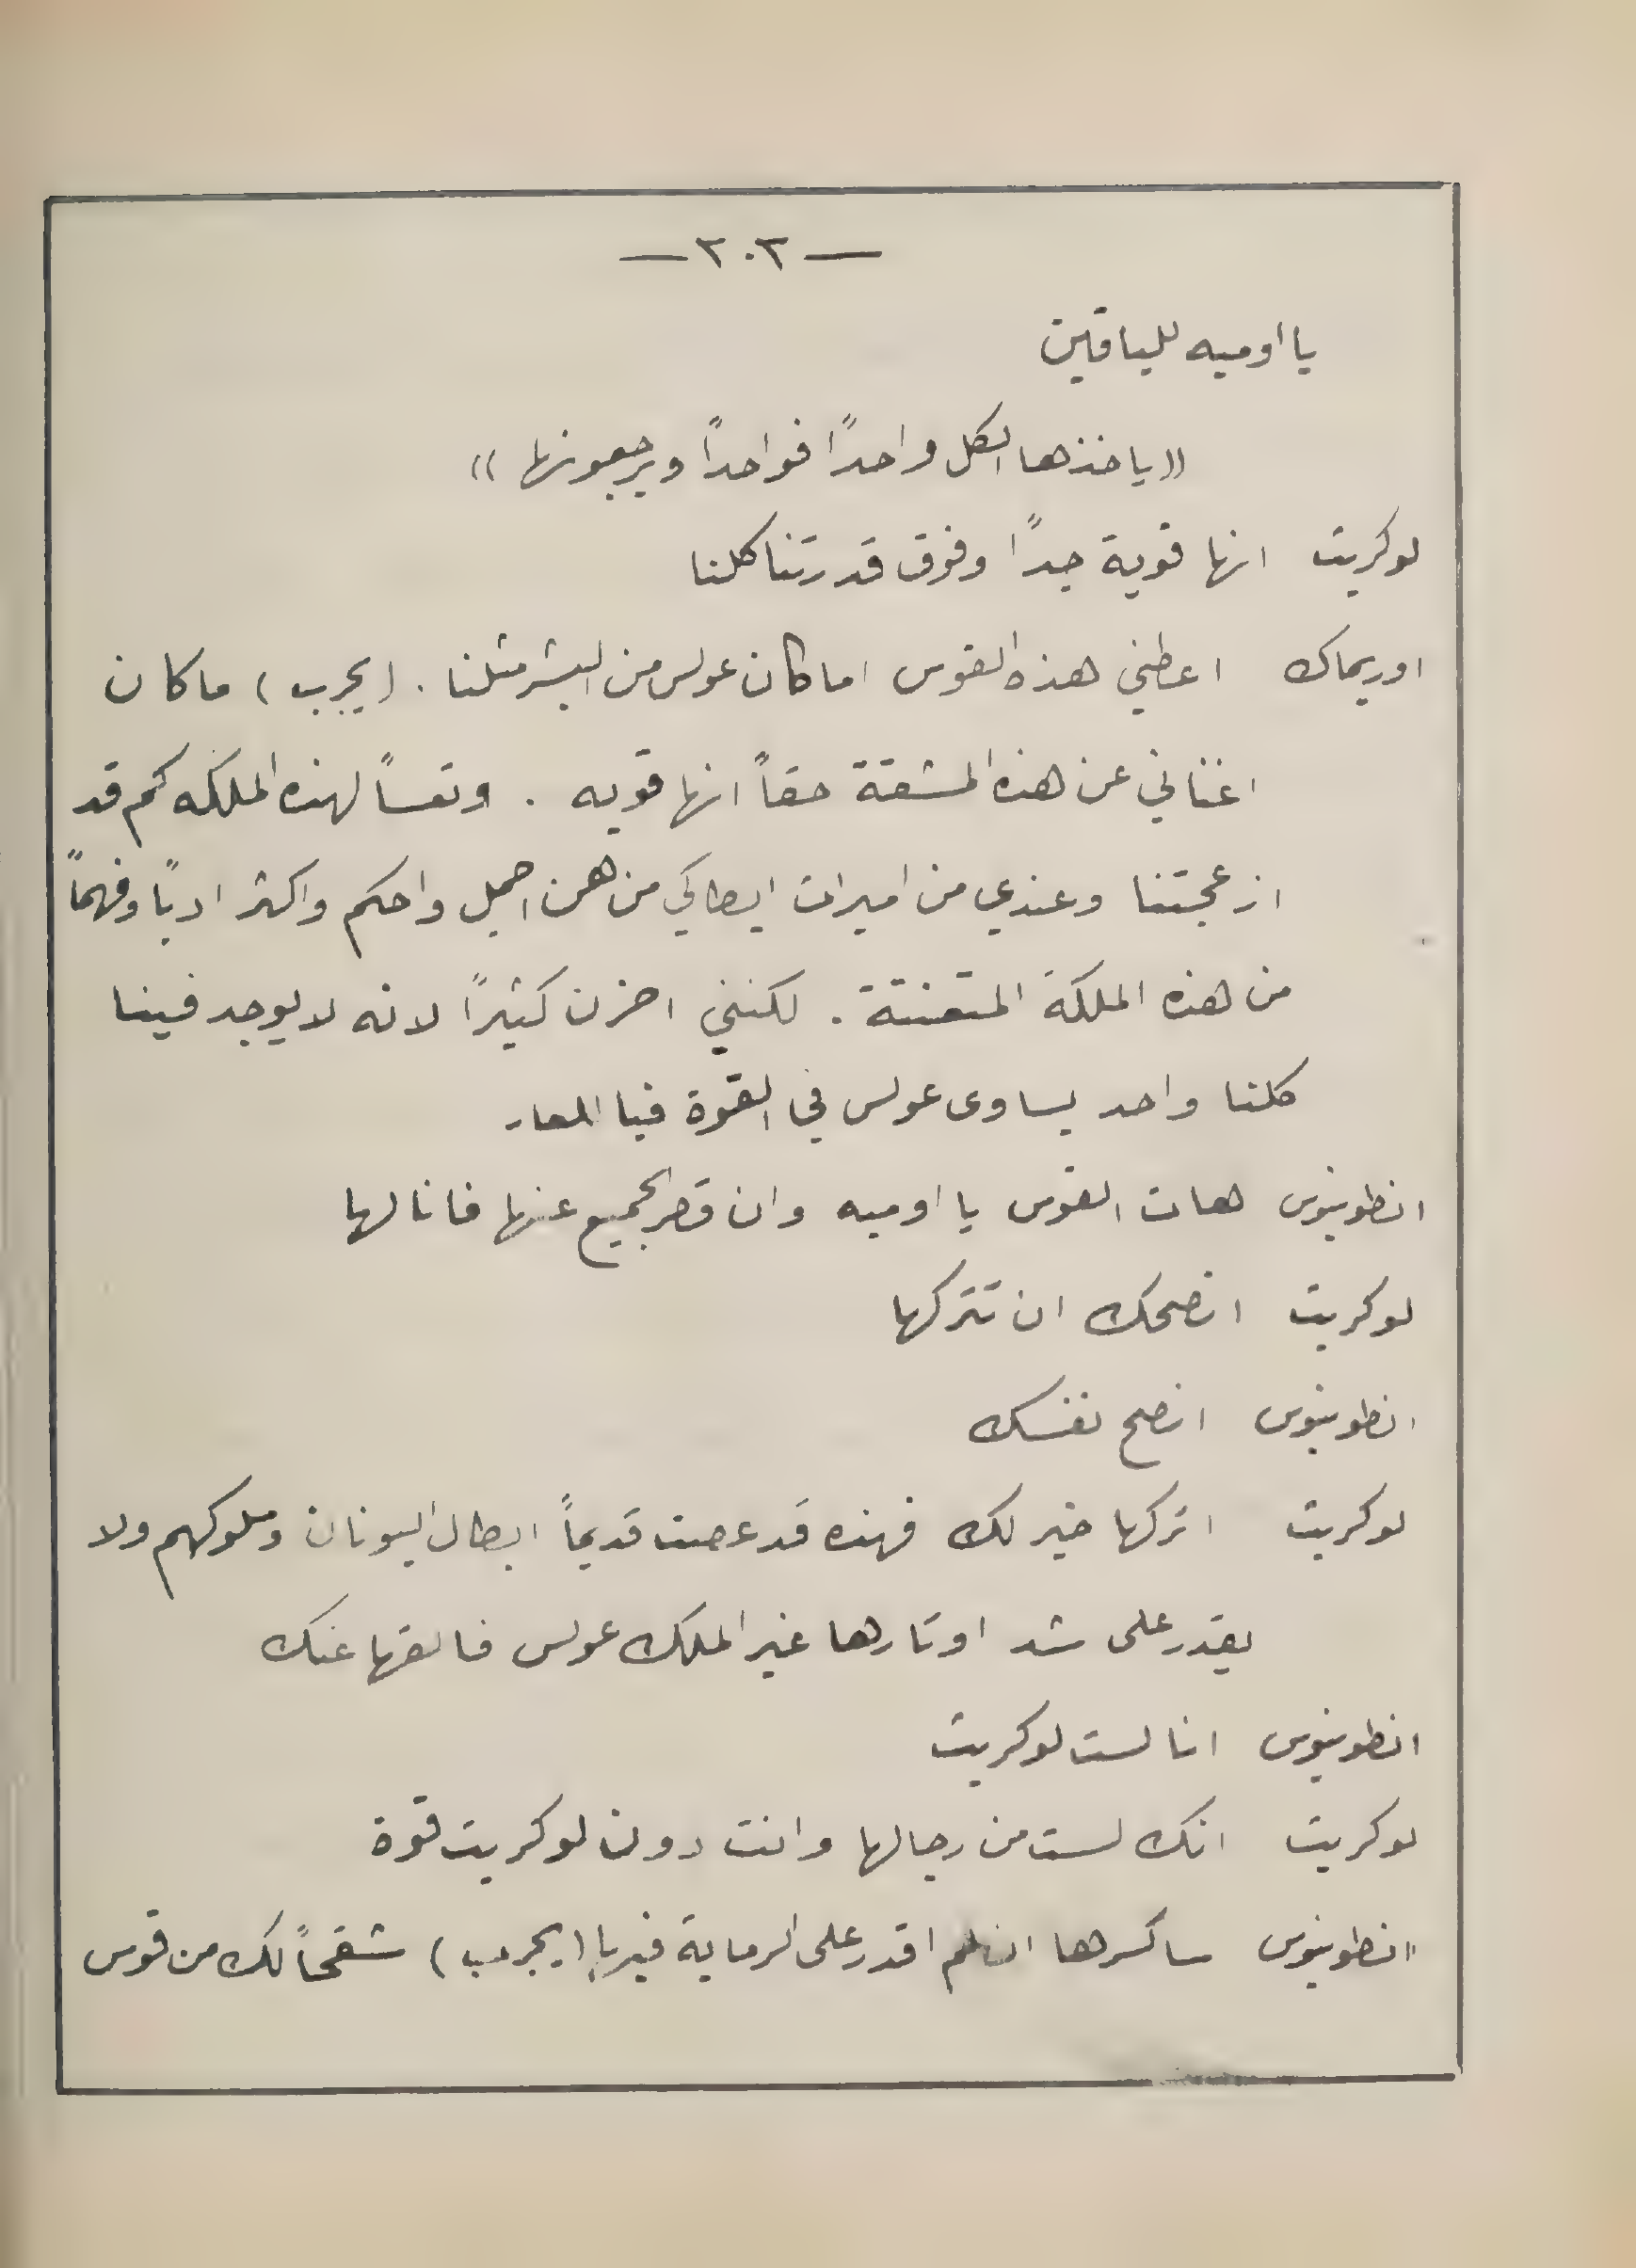 — ٢٠٣ —
يا اوميه للباقين
(( ياخذها الكل واحداً فواحداً ويرجعونها ))
لوكريت انها قوية جداً وفوق قدرتنا كلنا
اوريماك اعطني هذه القوس اما كان عولس من البشر مثلنا . (يجرب) ما كان
اغناني عن هذه المشقة حقاً انها قويه . وتعساً لهذه الملكه كم قد
ازعجتنا وعندي من اميرات ايطاكي من هن اجمل واحكم واكثر ادباً وفهماً
من هذه الملكة المتعنتة . لكنني احزن كثيراً لانه لا يوجد فينا
كلنا واحد يساوى عولس في القوة فيا للعار
انطونيوس هات القوس يا اوميه وان قصر الجميع عنها فانا لها
لوكريت انصحك ان تتركها
انطونيوس انصح نفسك
لوكريت اتركها خير لك فهذه قد عصت قديماً ابطال اليونان وملوكهم ولا
يقدر على شد اوتارها غير الملك عولس فالقها عنك
انطونيوس انا لست لوكريت
لوكريت انك لست من رجالها وانت دون لوكريت قوة
انطونيوس ساكسرها ان لم اقدر على الرماية فيها (يجرب) شقحاً لك من قوس